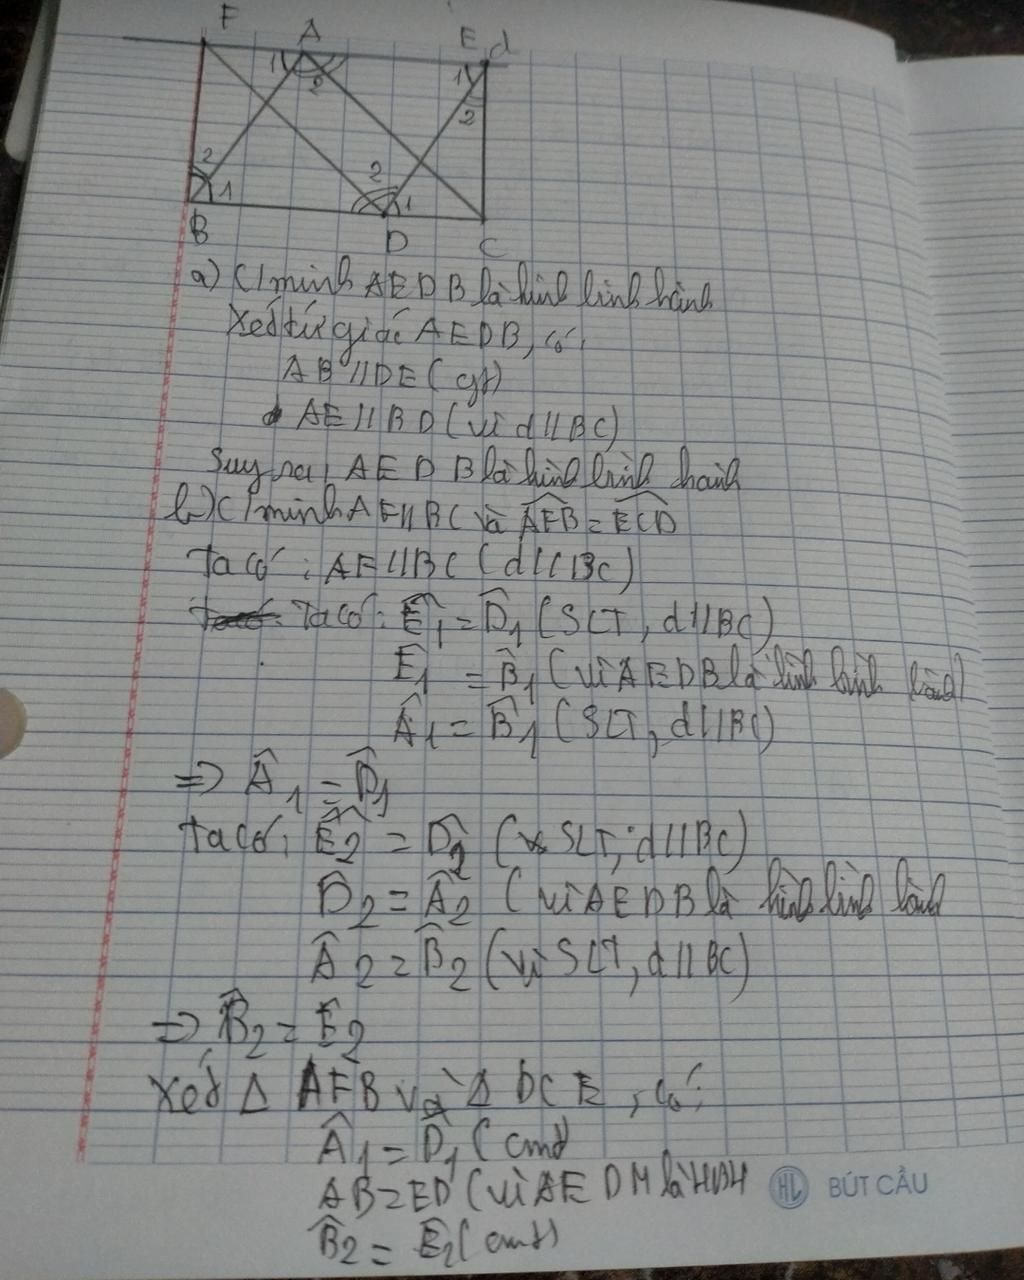 F A E d
1 2 1 2
2 1 2 1
B D C
a) C/minh AEDB là hình bình hành
Xét tứ giác AEDB, có:
AB // DE (gt)
AE // BD (vì d // BC)
Suy ra, AEDB là hình bình hành
b) C/minh AF // BC và AFB = ECD
Ta có: AF // BC (d // BC)
Ta có: E1 = D1 (SLT, d // BC)
E1 = B1 (vì AEDB là hình bình hành)
A1 = B1 (SLT, d // BC)
=> A1 = D1
Ta có: E2 = D2 (SLT, d // BC)
D2 = A2 (vì AEDB là hình bình hành
A2 = B2 (vì SLT, d // BC)
=> B2 = E2
Xét Δ AFB và Δ DCE, có:
A1 = D1 (cmt)
AB = ED (vì AEDM là HBH
B2 = E2 (cmt)
HL BÚT CẦU